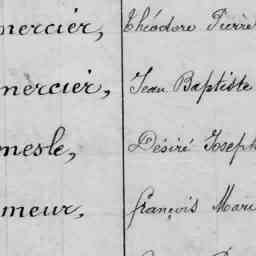 mercier, Théodore Pierre
mercier, Jean Baptiste
mesle, Désiré Joseph
meur, françois Marie